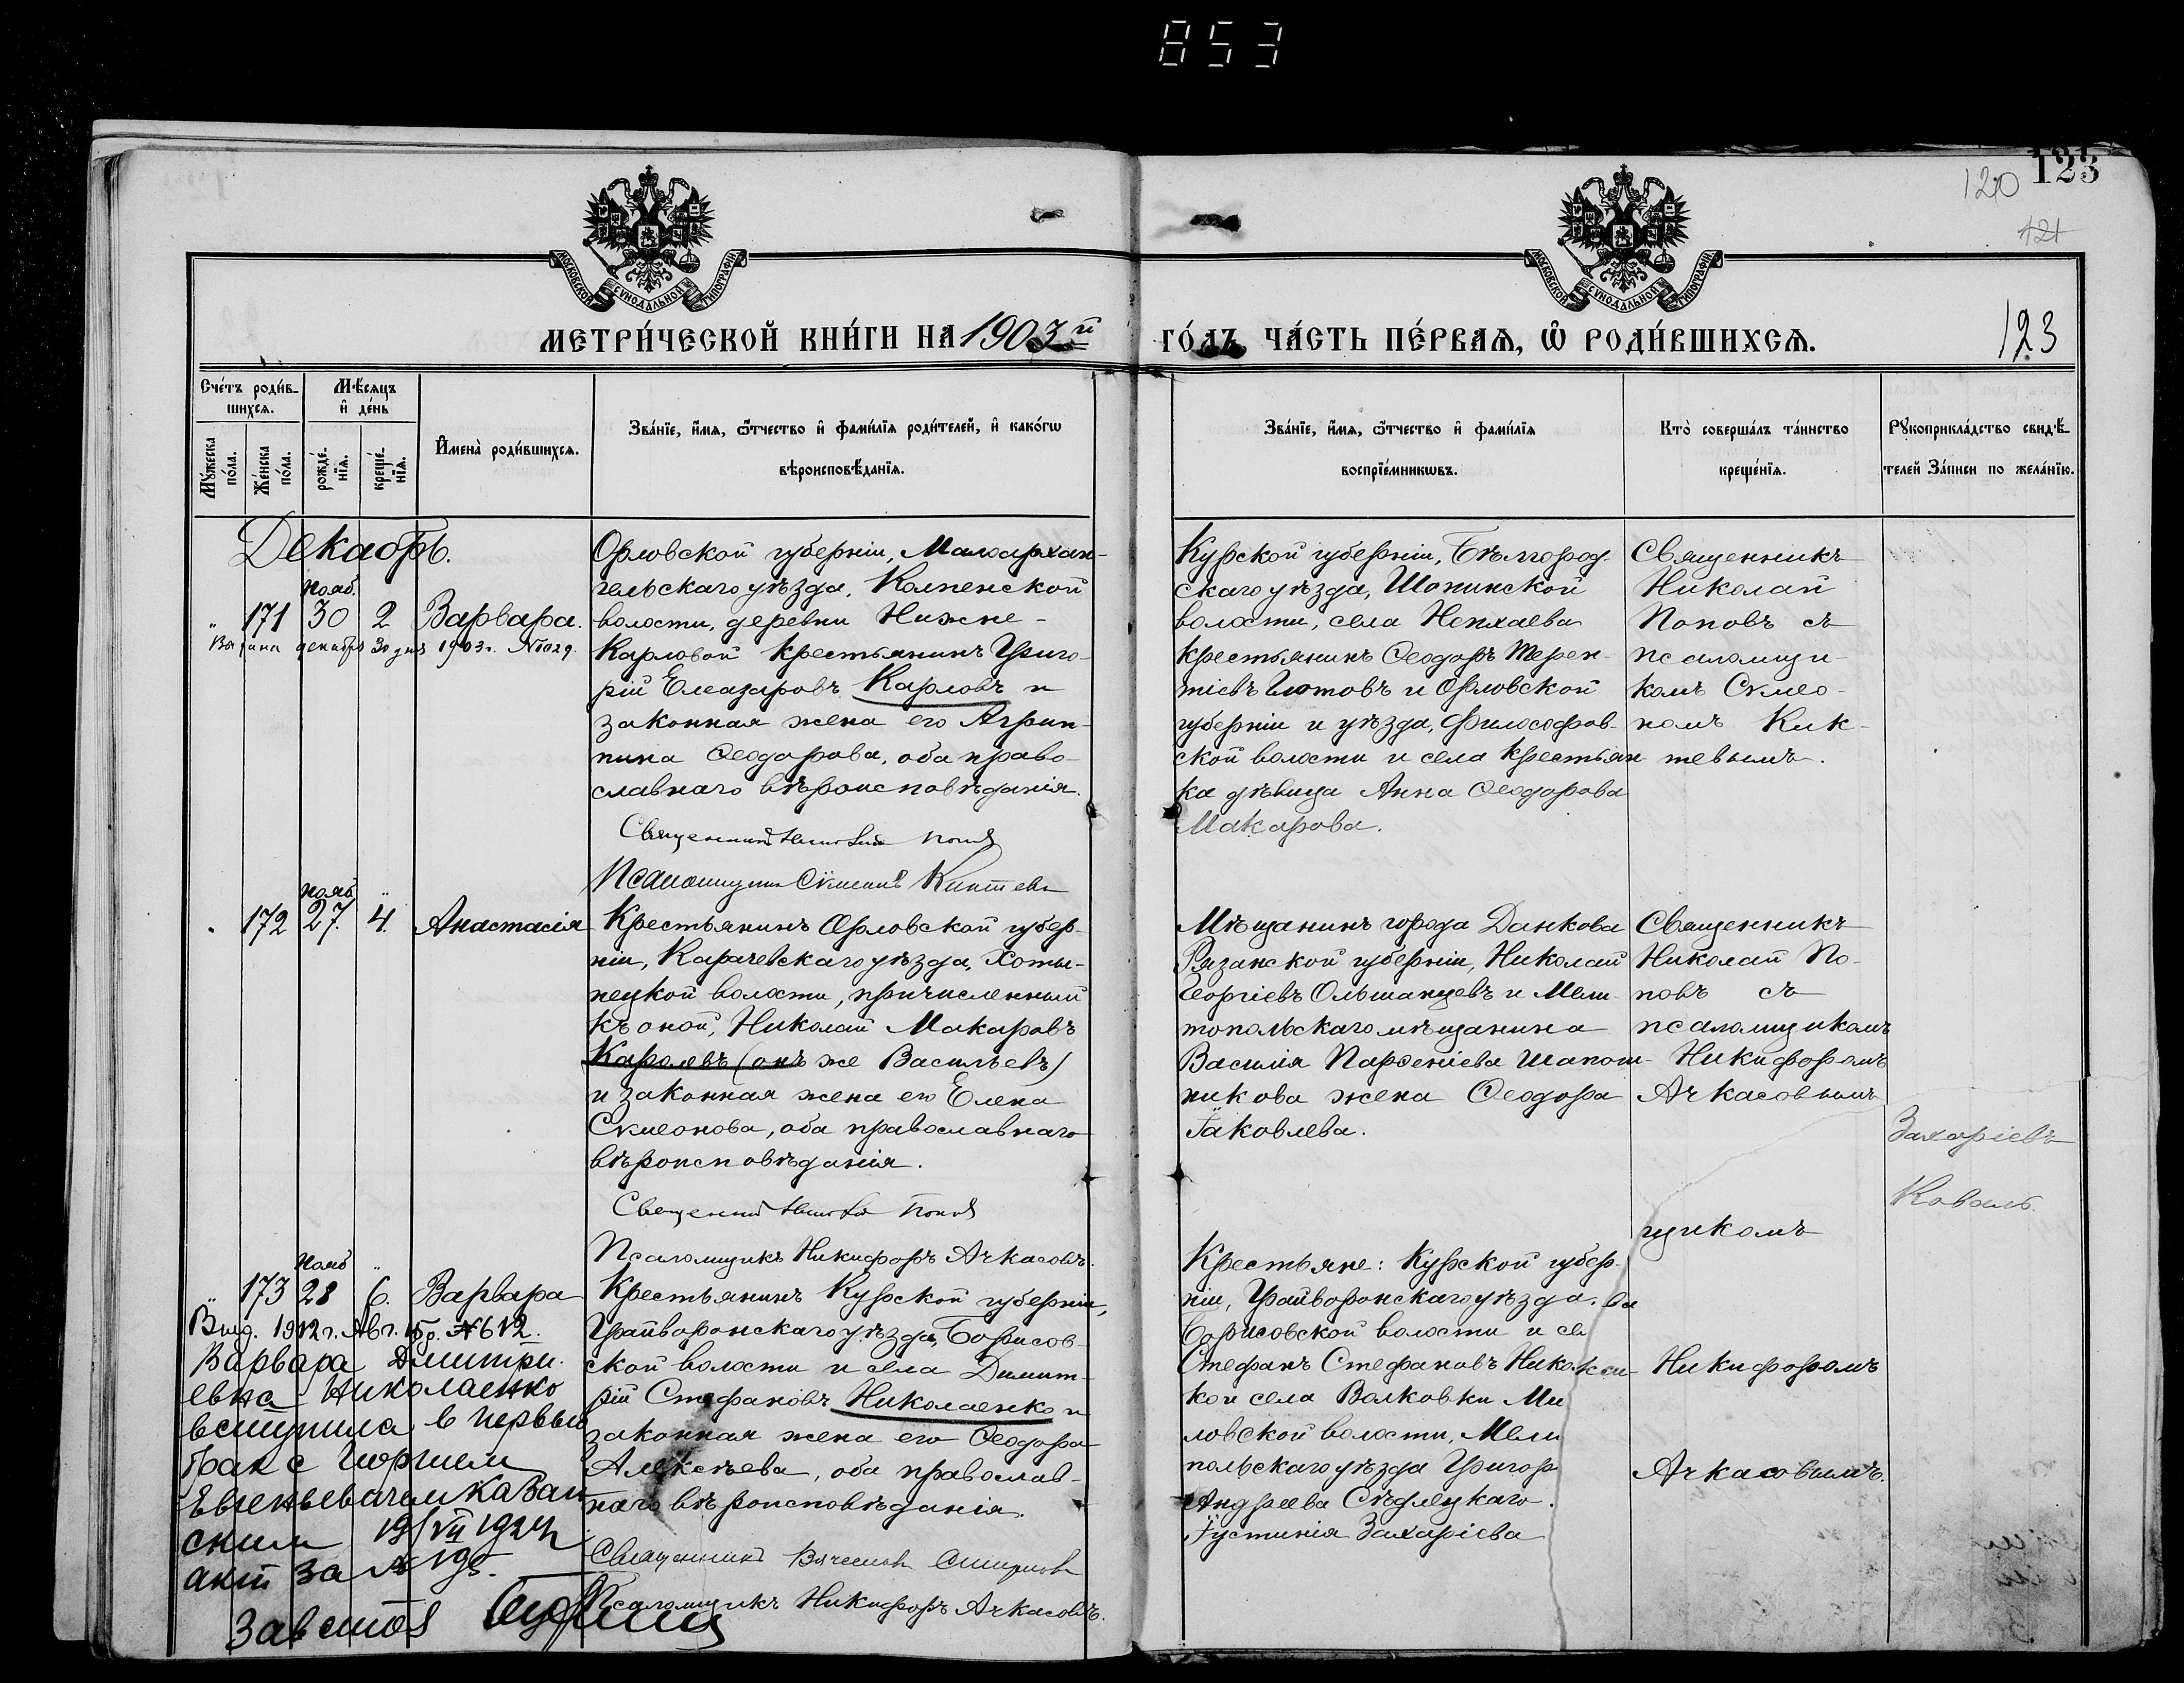 853
123
120
121
МОСКОВСКОЙ СѴНОДАЛЬНОЙ ТИПОГРАФІИ
МОСКОВСКОЙ СѴНОДАЛЬНОЙ ТИПОГРАФІИ
МЕТРИ́ЧЕСКОЙ КНИ́ГИ НА 1903й ГО́ДЪ, ЧА́СТЬ ПЕ́РВАѦ, Ѽ РОДИ́ВШИХСѦ.
123
Сче́тъ роди́в-
шихсѧ.
Мꙋжеска по́ла.
Же́нска по́ла.
Мѣ́сѧцъ
и҆ де́нь
рожде́-
нїѧ.
креще́-
нїѧ.
И҆мена̀ роди́вшихсѧ.
Зва́нїе, и҆́мѧ, ѻ҆́тчество и҆ фами́лїѧ роди́телей, и҆ како́гѡ
вѣроисповѣ́данїѧ.
Зва́нїе, и҆́мѧ, ѻ҆́тчество и҆ фами́лїѧ
воспрїе́мникѡвъ.
Кто̀ соверша́лъ та́инство
креще́нїѧ.
Рꙋкоприкла́дство свидѣ́-
телей За́писи по жела́нїю.
Декабрь.
нояб.
" 171 30 2 Варвара.
декабря 30 дня 1903 г. №1029.
Орловской губерніи, Малоархан-
гельскаго уѣзда, Колпенской
волости, деревни Нижне-
Карловой крестьянинъ Григо-
рій Елеазаровъ Карловъ и
законная жена его Агрип-
пина Ѳеодорова, оба право-
славнаго вѣроисповѣданія.
Священникъ Николай Поповъ
Псаломщикъ Сѵмеонъ Киктевъ
Курской губерніи, Бѣлгород-
скаго уѣзда, Шопинской
волости, села Непхаева
крестьянинъ Ѳеодоръ Терен-
тіевъ Глотовъ и Орловской
губерніи и уѣзда, Философов-
ской волости и села крестьян-
ка дѣвица Анна Ѳеодорова
Макарова.
Священникъ
Николай
Поповъ съ
псаломщи-
комъ Сѵмео-
номъ Кик-
тевымъ.
нояб. "
" 172 27. 4. Анастасія
Крестьянинъ Орловской губер-
ніи, Карачевскаго уѣзда, Хоты-
нецкой волости, причисленный
къ оной, Николай Макаровъ
Каролевъ (онъ же Васильевъ)
и законная жена его Елена
Сѵмеонова, оба православнаго
вѣроисповѣданія.
Священникъ Николай Поповъ
Псаломщикъ Никифоръ Ачкасовъ.
Мѣщанинъ города Данкова
Рязанской губерніи, Николай
Георгіевъ Ольшанцевъ и Мели-
топольскаго мѣщанина
Василія Парѳеніева Шапош-
никова жена Ѳеодора
Іаковлева.
Священникъ
Николай По-
повъ съ
псаломщикомъ
Никифоромъ
Ачкасовымъ
Захаріевъ
Коваль.
нояб "
" 173 28 6. Варвара
Выд. 1912 г. Авг. 15 д. №612.
Варвара Дмитри-
евна Николаенко
вступила в первый
брак с Георгием
Евгеньевичем Казан
ским 19/VII 1924 г
акт за № 195.
Завстол
Крестьянинъ Курской губерніи,
Грайворонскаго уѣзда, Борисов-
ской волости и села Димит-
рій Стефановъ Николаенко и
законная жена его Ѳеодора
Алексѣева, оба православ-
наго вѣроисповѣданія.
Священникъ Вячеславъ Смирновъ
Псаломщикъ Никифоръ Ачкасовъ.
Крестьяне: Курской губер-
ніи, Грайворонскаго уѣзда,
Борисовской волости и се
Стефанъ Стефановъ Никола
кой села Волковки Ми
ловской волости, Мели
польскаго уѣзда Григор
Андреева Сѣдлецкаго.
Іустинія Захаріева
щикомъ
Никифоромъ
Ачкасовымъ.